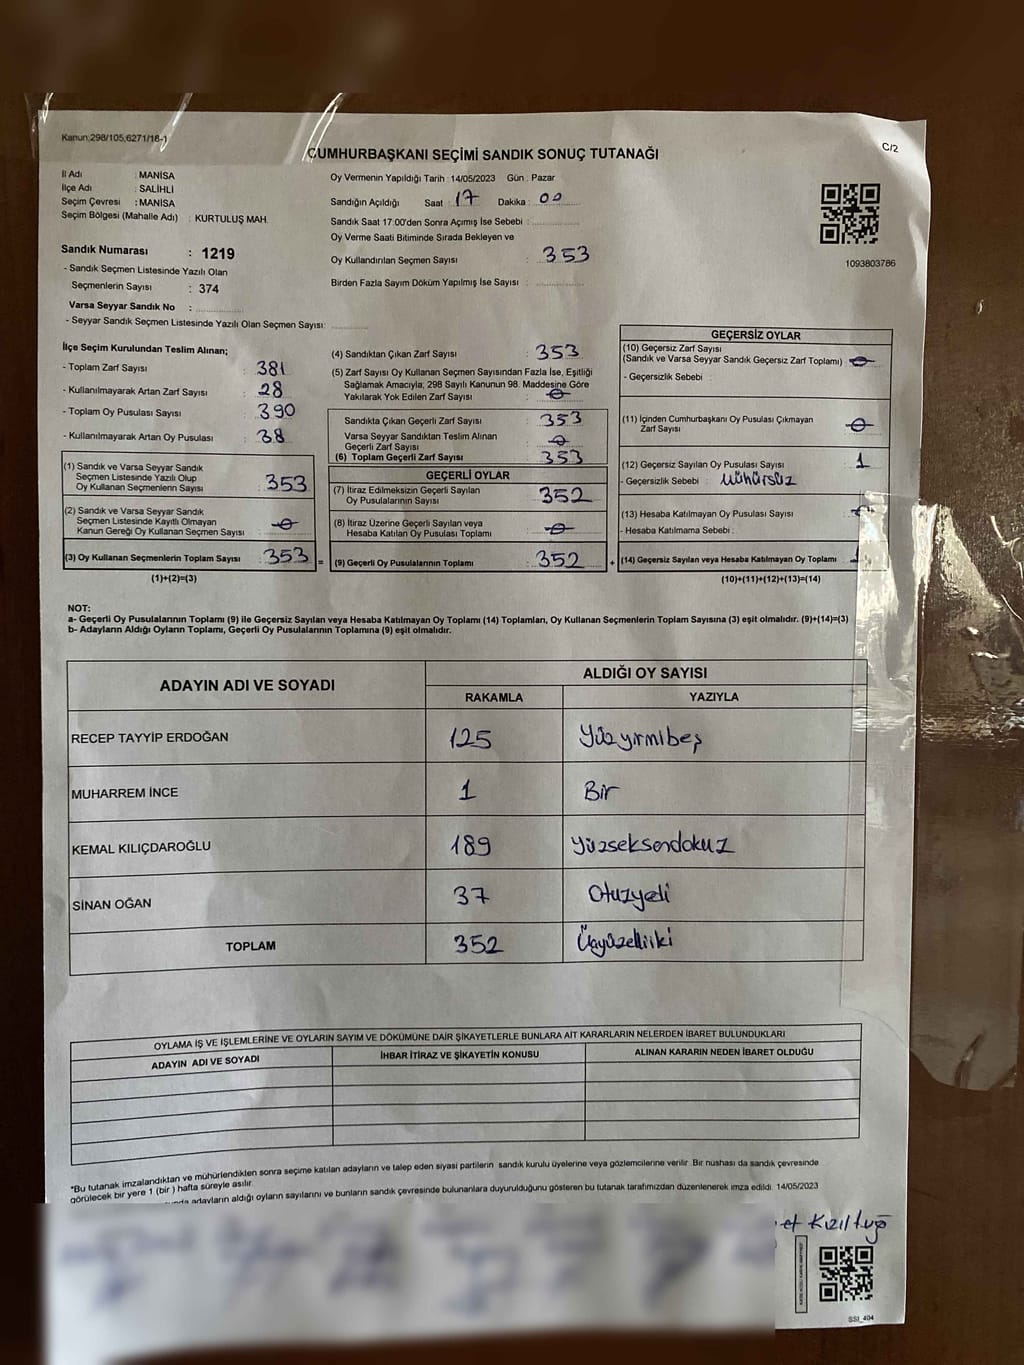 Kanun:298/105,6271/18-1
CUMHURBAŞKANI SEÇİMİ SANDIK SONUÇ TUTANAĞI
C/2
İl Adı : MANİSA
İlçe Adı : SALİHLİ
Seçim Çevresi : MANİSA
Seçim Bölgesi (Mahalle Adı) : KURTULUŞ MAH.
Sandık Numarası : 1219
- Sandık Seçmen Listesinde Yazılı Olan
Seçmenlerin Sayısı : 374
Varsa Seyyar Sandık No :
- Seyyar Sandık Seçmen Listesinde Yazılı Olan Seçmen Sayısı:
Oy Vermenin Yapıldığı Tarih : 14/05/2023 Gün : Pazar
Sandığın Açıldığı Saat : 17 Dakika : 00
Sandık Saat 17:00'den Sonra Açımış İse Sebebi :
Oy Verme Saati Bitiminde Sırada Bekleyen ve
Oy Kullandırılan Seçmen Sayısı : 353
Birden Fazla Sayım Döküm Yapılmış İse Sayısı :
1093803786
İlçe Seçim Kurulundan Teslim Alınan;
- Toplam Zarf Sayısı : 381
- Kullanılmayarak Artan Zarf Sayısı : 28
- Toplam Oy Pusulası Sayısı : 390
- Kullanılmayarak Artan Oy Pusulası : 38
(1) Sandık ve Varsa Seyyar Sandık
Seçmen Listesinde Yazılı Olup
Oy Kullanan Seçmenlerin Sayısı : 353
(2) Sandık ve Varsa Seyyar Sandık
Seçmen Listesinde Kayıtlı Olmayan
Kanun Gereği Oy Kullanan Seçmen Sayısı : 0
(3) Oy Kullanan Seçmenlerin Toplam Sayısı : 353
(1)+(2)=(3)
=
(4) Sandıktan Çıkan Zarf Sayısı : 353
(5) Zarf Sayısı Oy Kullanan Seçmen Sayısından Fazla İse, Eşitliği
Sağlamak Amacıyla; 298 Sayılı Kanunun 98. Maddesine Göre
Yakılarak Yok Edilen Zarf Sayısı : 0
Sandıkta Çıkan Geçerli Zarf Sayısı : 353
Varsa Seyyar Sandıktan Teslim Alınan
Geçerli Zarf Sayısı : 0
(6) Toplam Geçerli Zarf Sayısı : 353
GEÇERLİ OYLAR
(7) İtiraz Edilmeksizin Geçerli Sayılan
Oy Pusulalarının Sayısı : 352
(8) İtiraz Üzerine Geçerli Sayılan veya
Hesaba Katılan Oy Pusulası Toplamı : 0
(9) Geçerli Oy Pusulalarının Toplamı : 352
+
GEÇERSİZ OYLAR
(10) Geçersiz Zarf Sayısı
(Sandık ve Varsa Seyyar Sandık Geçersiz Zarf Toplamı) : 0
- Geçersizlik Sebebi :
(11) İçinden Cumhurbaşkanı Oy Pusulası Çıkmayan
Zarf Sayısı : 0
(12) Geçersiz Sayılan Oy Pusulası Sayısı : 1
- Geçersizlik Sebebi : Mühürsüz
(13) Hesaba Katılmayan Oy Pusulası Sayısı :
- Hesaba Katılmama Sebebi :
(14) Geçersiz Sayılan veya Hesaba Katılmayan Oy Toplamı :
(10)+(11)+(12)+(13)=(14)
NOT:
a- Geçerli Oy Pusulalarının Toplamı (9) ile Geçersiz Sayılan veya Hesaba Katılmayan Oy Toplamı (14) Toplamları, Oy Kullanan Seçmenlerin Toplam Sayısına (3) eşit olmalıdır. (9)+(14)=(3)
b- Adayların Aldığı Oyların Toplamı, Geçerli Oy Pusulalarının Toplamına (9) eşit olmalıdır.
ADAYIN ADI VE SOYADI
ALDIĞI OY SAYISI
RAKAMLA YAZIYLA
RECEP TAYYİP ERDOĞAN 125 Yüzyirmibeş
MUHARREM İNCE 1 Bir
KEMAL KILIÇDAROĞLU 189 Yüzseksendokuz
SİNAN OĞAN 37 Otuzyedi
TOPLAM 352 Üçyüzelliiki
OYLAMA İŞ VE İŞLEMLERİNE VE OYLARIN SAYIM VE DÖKÜMÜNE DAİR ŞİKAYETLERLE BUNLARA AİT KARARLARIN NELERDEN İBARET BULUNDUKLARI
ADAYIN ADI VE SOYADI İHBAR İTİRAZ VE ŞİKAYETİN KONUSU ALINAN KARARIN NEDEN İBARET OLDUĞU
*Bu tutanak imzalandıktan ve mühürlendikten sonra seçime katılan adayların ve talep eden siyasi partilerin sandık kurulu üyelerine veya gözlemcilerine verilir. Bir nüshası da sandık çevresinde
görülecek bir yere 1 (bir) hafta süreyle asılır.
adayların aldığı oyların sayılarını ve bunların sandık çevresinde bulunanlara duyurulduğunu gösteren bu tutanak tarafımızdan düzenlenerek imza edildi. 14/05/2023
et Kızıltuğ
SSI_404